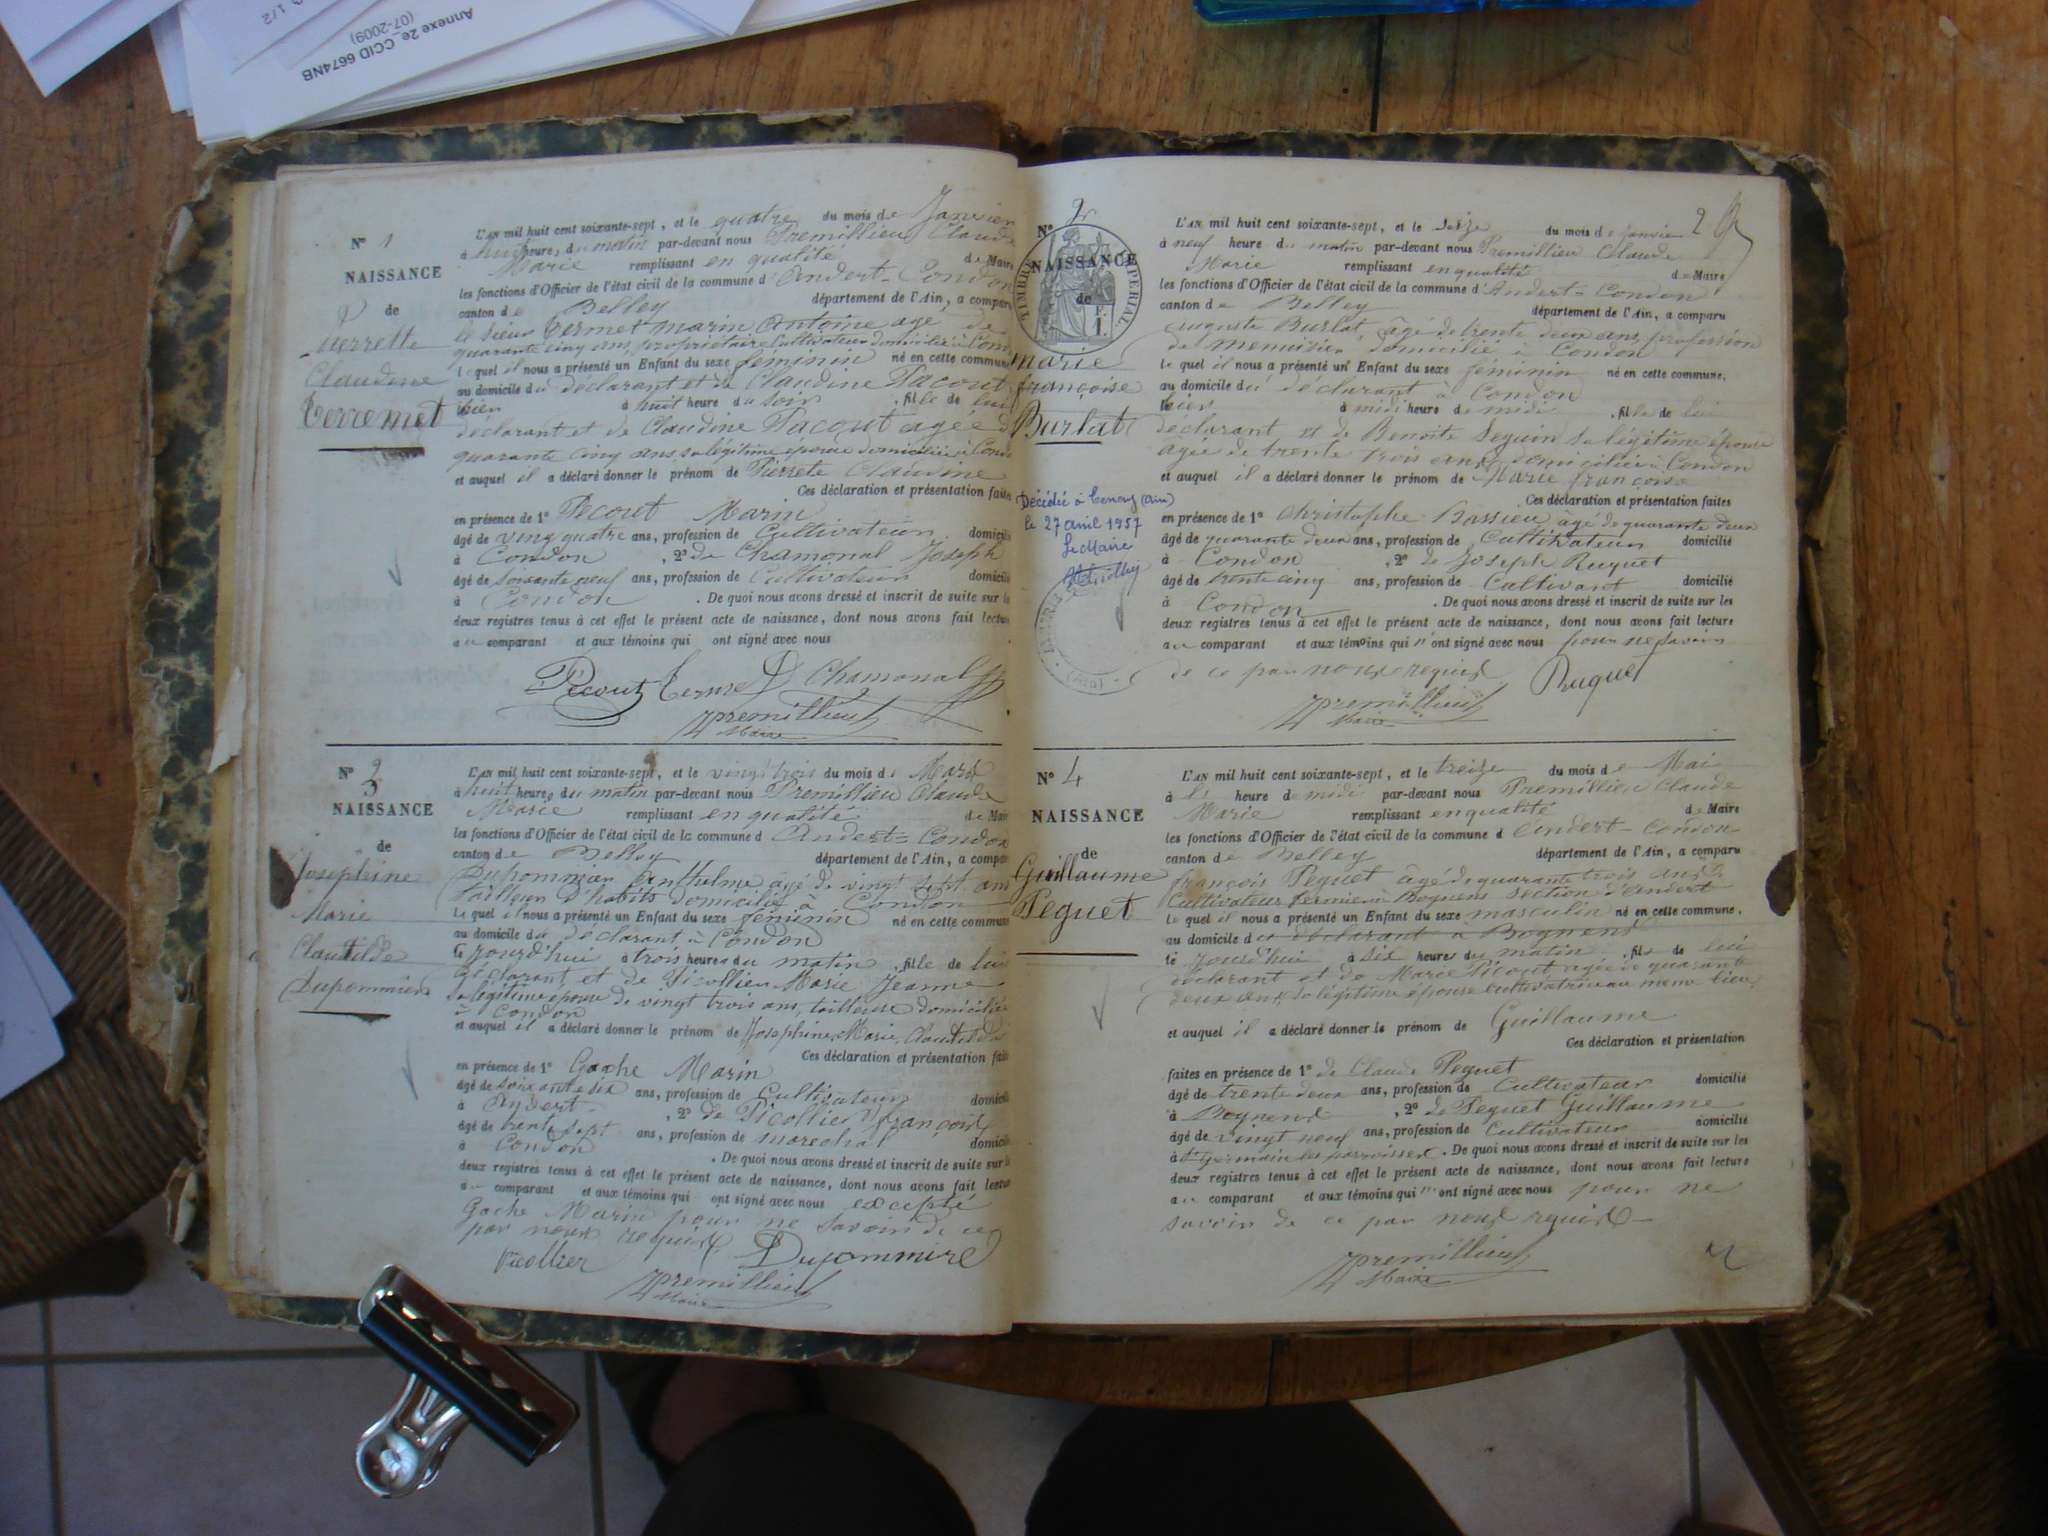 Annexe 2e_CCID 6674NB
(07-2009)
N° 1
NAISSANCE
de
Pierrette
Claudine
Terremet
L'AN mil huit cent soixante-sept, et le quatre du mois de Janvier
à huit heure, du matin par-devant nous Premillieu Claude
Marie remplissant en qualité de Maire
les fonctions d'Officier de l'état civil de la commune d'Andert-Condon
canton de Belley département de l'Ain, a comparu
le sieur Termet marin Antoine agé de
quarante cinq ans, propriétaire Cultivateur domicilié à Cond
Lequel il nous a présenté un Enfant du sexe féminin né en cette commune
au domicile du déclarant et de Claudine Pacout
hier à huit heure du soir , fille de lui
déclarant et de Claudine Pacout agée d
quarante cinq ans, sa légitime épouse domiciliée à Cond
et auquel il a déclaré donner le prénom de Pierrete Claudine
Ces déclaration et présentation faites
en présence de 1° Pecout Marin
âgé de vingt quatre ans, profession de Cultivateur domicilié
à Condon , 2° de Chamonal Joseph
âgé de soixante neuf ans, profession de Cultivateur domicilié
à Condon . De quoi nous avons dressé et inscrit de suite sur les
deux registres tenus à cet effet le présent acte de naissance, dont nous avons fait lecture
au comparant et aux témoins qui ont signé avec nous
Pecout Terme Chamonal
Premillieu
Maire
N° 3
NAISSANCE
de
Josephine
Marie
Clautilde
Dupommier
L'AN mil huit cent soixante-sept, et le vingt trois du mois de Mars
à huit heures du matin par-devant nous Premillieu Claude
Marie remplissant en qualité de Maire
les fonctions d'Officier de l'état civil de la commune d Andert-Condon
canton de Belley département de l'Ain, a comparu
Dupommier Anthelme âgé de vingt sept ans
tailleur d'habits domicilié à Condon
Lequel il nous a présenté un Enfant du sexe féminin né en cette commune
au domicile du déclarant à Condon
le jourd'hui à trois heures du matin , fille de lui
déclarant et de Picollier Marie Jeanne
sa légitime épouse de vingt trois ans, tailleuse domiciliée
à Condon
et auquel il a déclaré donner le prénom de Josephine, Marie, Clautilde
Ces déclaration et présentation faites
en présence de 1° Gache Marin
âgé de soixante dix ans, profession de Cultivateur domicilié
à Andert , 2° de Picollier françois
âgé de trente sept ans, profession de marechal domicilié
à Condon . De quoi nous avons dressé et inscrit de suite sur les
deux registres tenus à cet effet le présent acte de naissance, dont nous avons fait lecture
au comparant et aux témoins qui ont signé avec nous excepté
Gache Marin pour ne savoir de ce
par nous requis
Picollier Dupommier
Premillieu
Maire
N° 2
NAISSANCE
de
TIMBRE IMPERIAL
F.
1.
marie
françoise
Burlat
Décédée à Tenay (Ain)
le 27 avril 1957
Le Maire
2
L'AN mil huit cent soixante-sept, et le seize du mois de janvier
à neuf heure du matin par-devant nous Premillieu Claude
Marie remplissant en qualité de Maire
les fonctions d'Officier de l'état civil de la commune d'Andert-Condon
canton de Belley département de l'Ain, a comparu
auguste Burlat, âgé de trente deux ans, profession
de menuisier domicilié à Condon
Lequel il nous a présenté un Enfant du sexe féminin né en cette commune,
au domicile du déclarant à Condon
hier à midi heure de midi , fille de lui
déclarant et de Benoite Seguin sa légitime épouse
agée de trente trois ans domiciliée à Condon
et auquel il a déclaré donner le prénom de Marie françoise
Ces déclaration et présentation faites
en présence de 1° Christophe Bassieu âgé de quarante deux
âgé de quarante deux ans, profession de Cultivateur domicilié
à Condon , 2° de Joseph Ruguet
âgé de trente cinq ans, profession de Cultivant domicilié
à Condon . De quoi nous avons dressé et inscrit de suite sur les
deux registres tenus à cet effet le présent acte de naissance, dont nous avons fait lecture
au comparant et aux témoins qui n'ont signé avec nous pour ne savoir
de ce par nous requis
Ruguet
Premillieu
Maire
N° 4
NAISSANCE
de
Guillaume
Peguet
L'AN mil huit cent soixante-sept, et le treize du mois de Mai
à heure de midi par-devant nous Premillieu Claude
Marie remplissant en qualité de Maire
les fonctions d'Officier de l'état civil de la commune d Andert-Condon
canton de Belley département de l'Ain, a comparu
françois Peguet âgé de quarante trois ans
Cultivateur fermier à Bognens section d'Andert
Lequel il nous a présenté un Enfant du sexe masculin né en cette commune,
au domicile du déclarant à Bognens
le jourd'hui à six heures du matin , fils de lui
déclarant et de Marie Picout, agée de quarante
deux ans, sa légitime épouse cultivatrice au meme lieu,
et auquel il a déclaré donner le prénom de Guillaume
Ces déclaration et présentation
faites en présence de 1° de Claude Peguet
âgé de trente deux ans, profession de Cultivateur domicilié
à Bognens , 2° de Peguet Guillaume
âgé de vingt neuf ans, profession de Cultivateur domicilié
à St Germain les paroisses . De quoi nous avons dressé et inscrit de suite sur les
deux registres tenus à cet effet le présent acte de naissance, dont nous avons fait lecture
au comparant et aux témoins qui n'ont signé avec nous pour ne
savoir de ce par nous requis
Premillieu
Maire